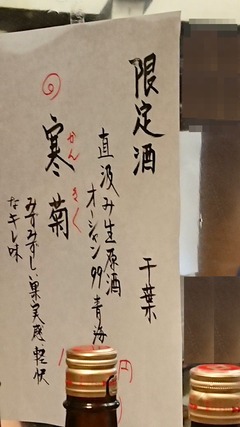 限定酒
千葉
直汲み生原酒
オーシャン99 青海
寒菊
かんきく
みずみずしい果実感 軽快
なキレ味
円